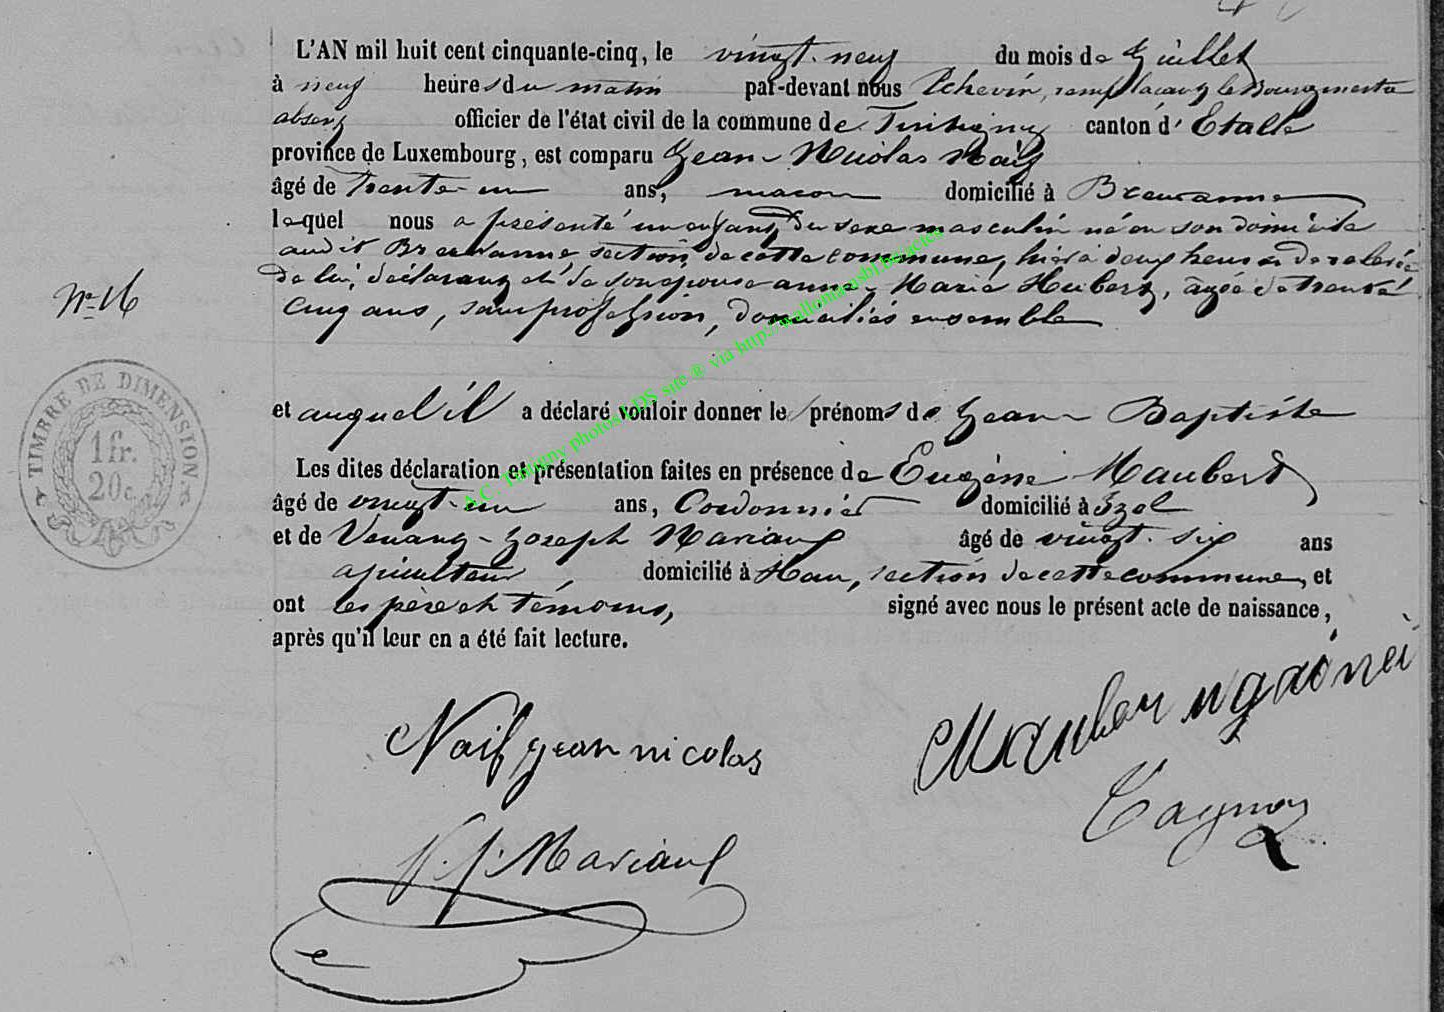 L'AN mil huit cent cinquante-cinq, le vingt-neuf du mois de Juillet
à neuf heures du matin par-devant nous Echevin, remplaçant le Bourgmestre
absent officier de l'état civil de la commune de Tintigny canton d'Etalle
province de Luxembourg, est comparu Jean-Nicolas Naif
âgé de Trente-un ans, macon domicilié à Breuvanne
lequel nous a présenté un enfant du sexe masculin né en son domicile
audit Breuvanne section de cette commune, hier à deux heures de relevée
de lui, déclarant et de son epouse anne-Marie Hubert, agée de trente
cinq ans, sans profession, domiciliés ensemble
No 16
TIMBRE DE DIMENSION
1 fr.
20 c.
et auquel il a déclaré vouloir donner les prénoms de Jean Baptiste
Les dites déclaration et présentation faites en présence de Eugène Maubert
âgé de vingt-un ans, Cordonnier domicilié à Izel
et de Venant-Joseph Mariaux âgé de vingt-six ans
apiculteur, domicilié à Han, section de cette commune, et
ont les père et témoins, signé avec nous le présent acte de naissance,
après qu'il leur en a été fait lecture.
Naif jean nicolas
V. J. Mariaux
A.C. Tintigny photos LDS site ® via http://wallonia-asbl.be/actes